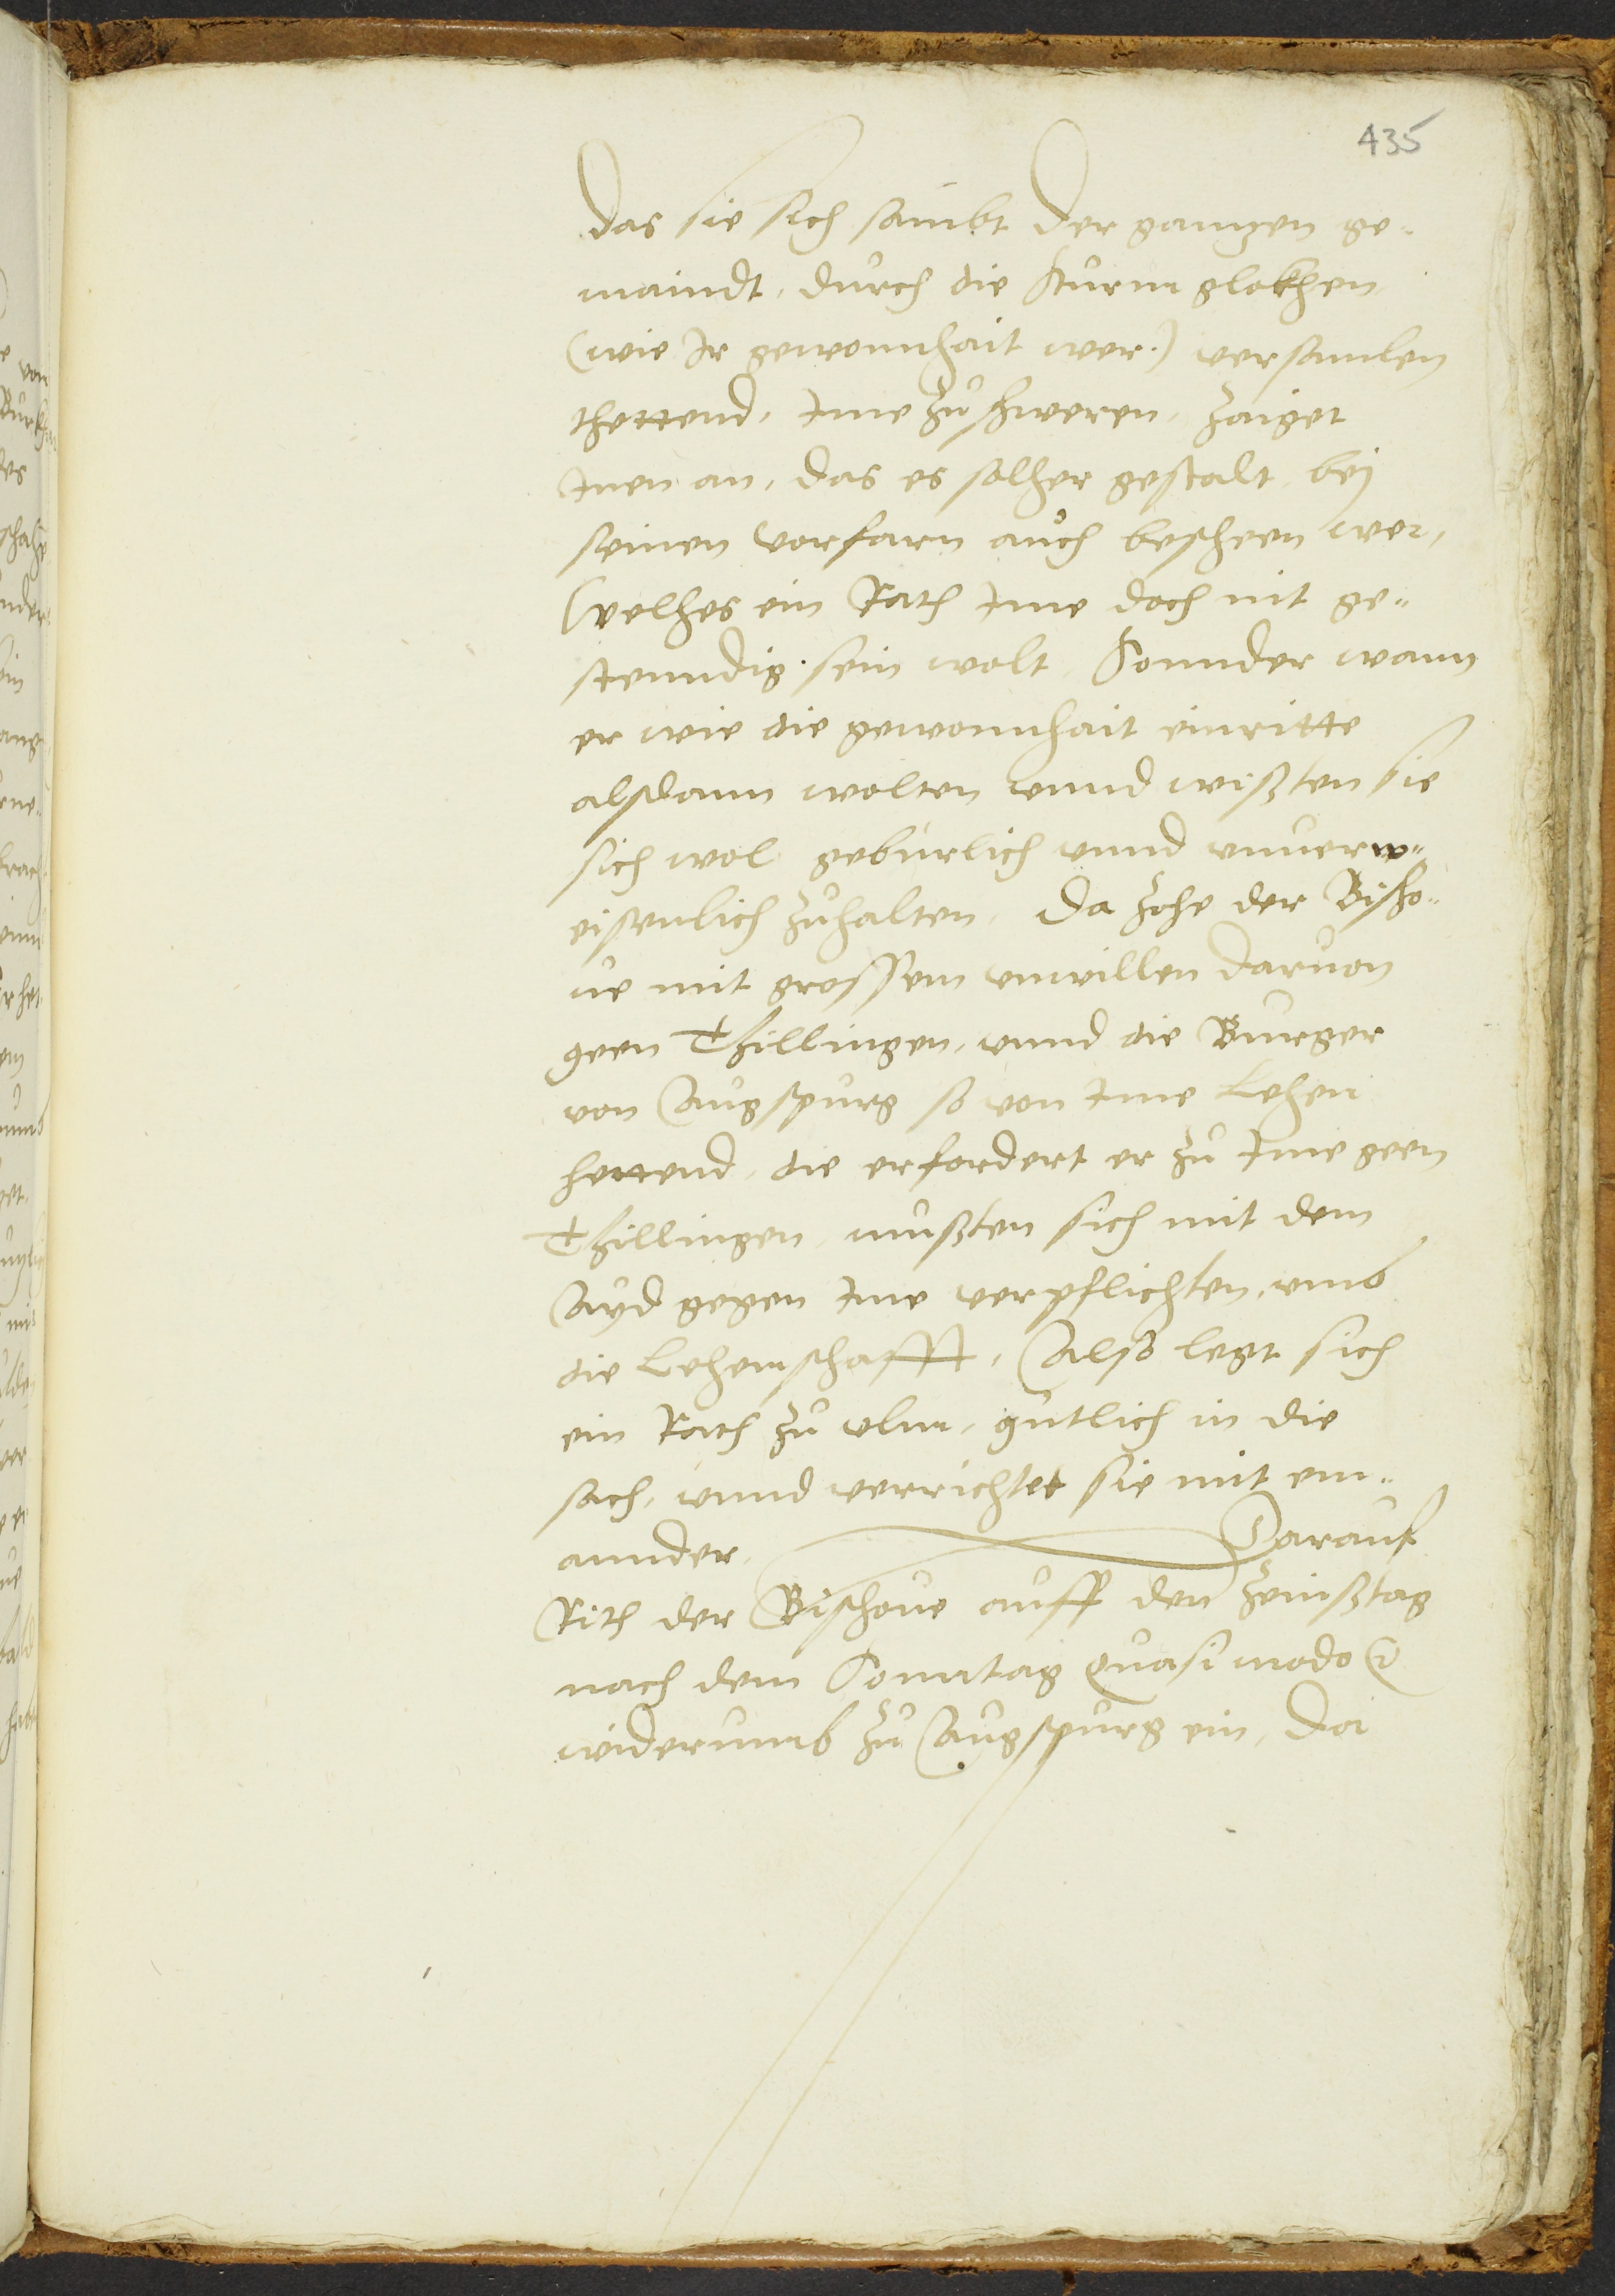 435
das sie sich sambt der ganntzen ge-
maindt, durch die Sturm glokhen
(wie Ir gewonnhait wer.) versamlen
thettend, Ime zu schweren, zaiget
Inen an, das es solher gestalt, bej
seinen vorfarn auch bescheen wer,
(welhes ein Rath Ime doch nit ge-
stenndig sein wolt, Sonnder wann
er wie die gewonnhait einritte
alßdann wolten vnnd wißten sie
sich wol geburlich vnnd vnuerw-
eisenlich zuhalten, Da zohe der Bischo-
ue mit grossem vnwillen daruon
geen Thillingen, vnnd die Burger
von Augspurg so von Ime Lehen
hettend, die erfordert er zu Ime geen
Thillingen, mußten sich mit dem
Ayd gegen Ime verpflichten, vmb
die Lehenschafft, Also legt sich
ein Rath zu vlm, gutlich in die
sach, vnnd verrichtet sie mit ein-
annder. Darauf
Rith der Bischoue auff den zeinßtag
nach dem Sonntag Quasimodo
widerumb zu Augspurg ein, Da